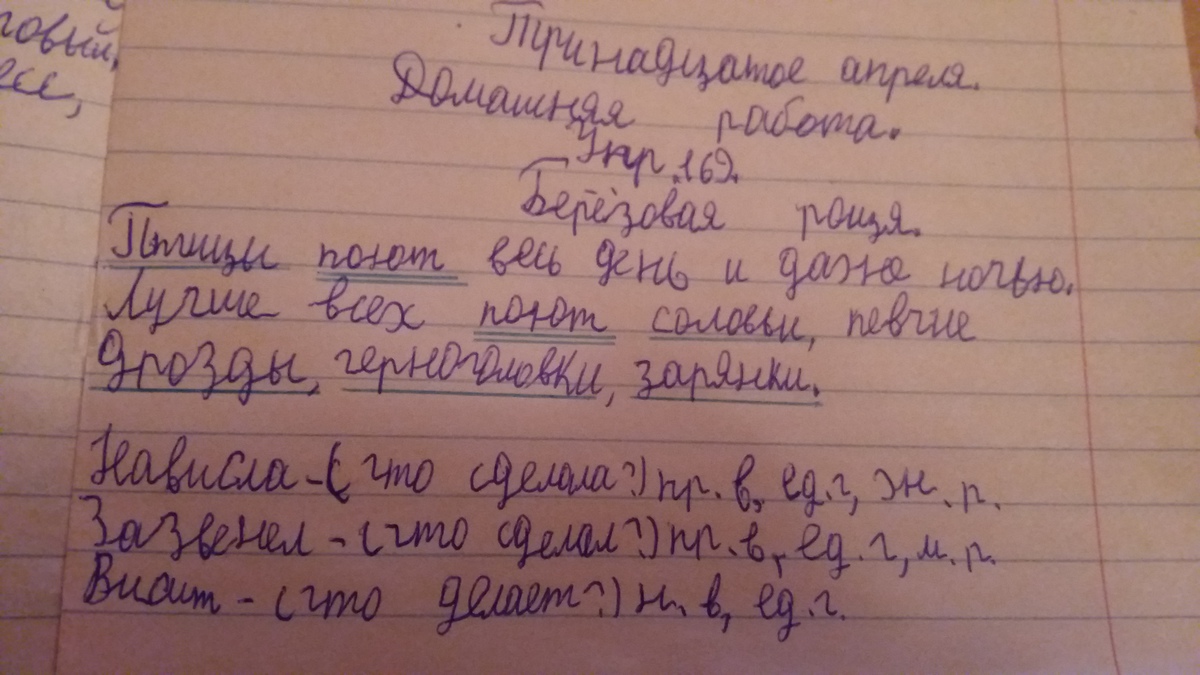 говый,
есс,
Тринадцатое апреля.
Домашняя работа.
Упр. 169.
Берёзовая роща.
Птицы поют весь день и даже ночью.
Лучше всех поют соловьи, певчие
дрозды, черноголовки, зарянки.
Нависла - (что сделала?) пр. в, ед. ч, ж. р.
Зазвенел - (что сделал?) пр. в, ед. ч, м. р.
Висит - (что делает?) н. в, ед. ч.